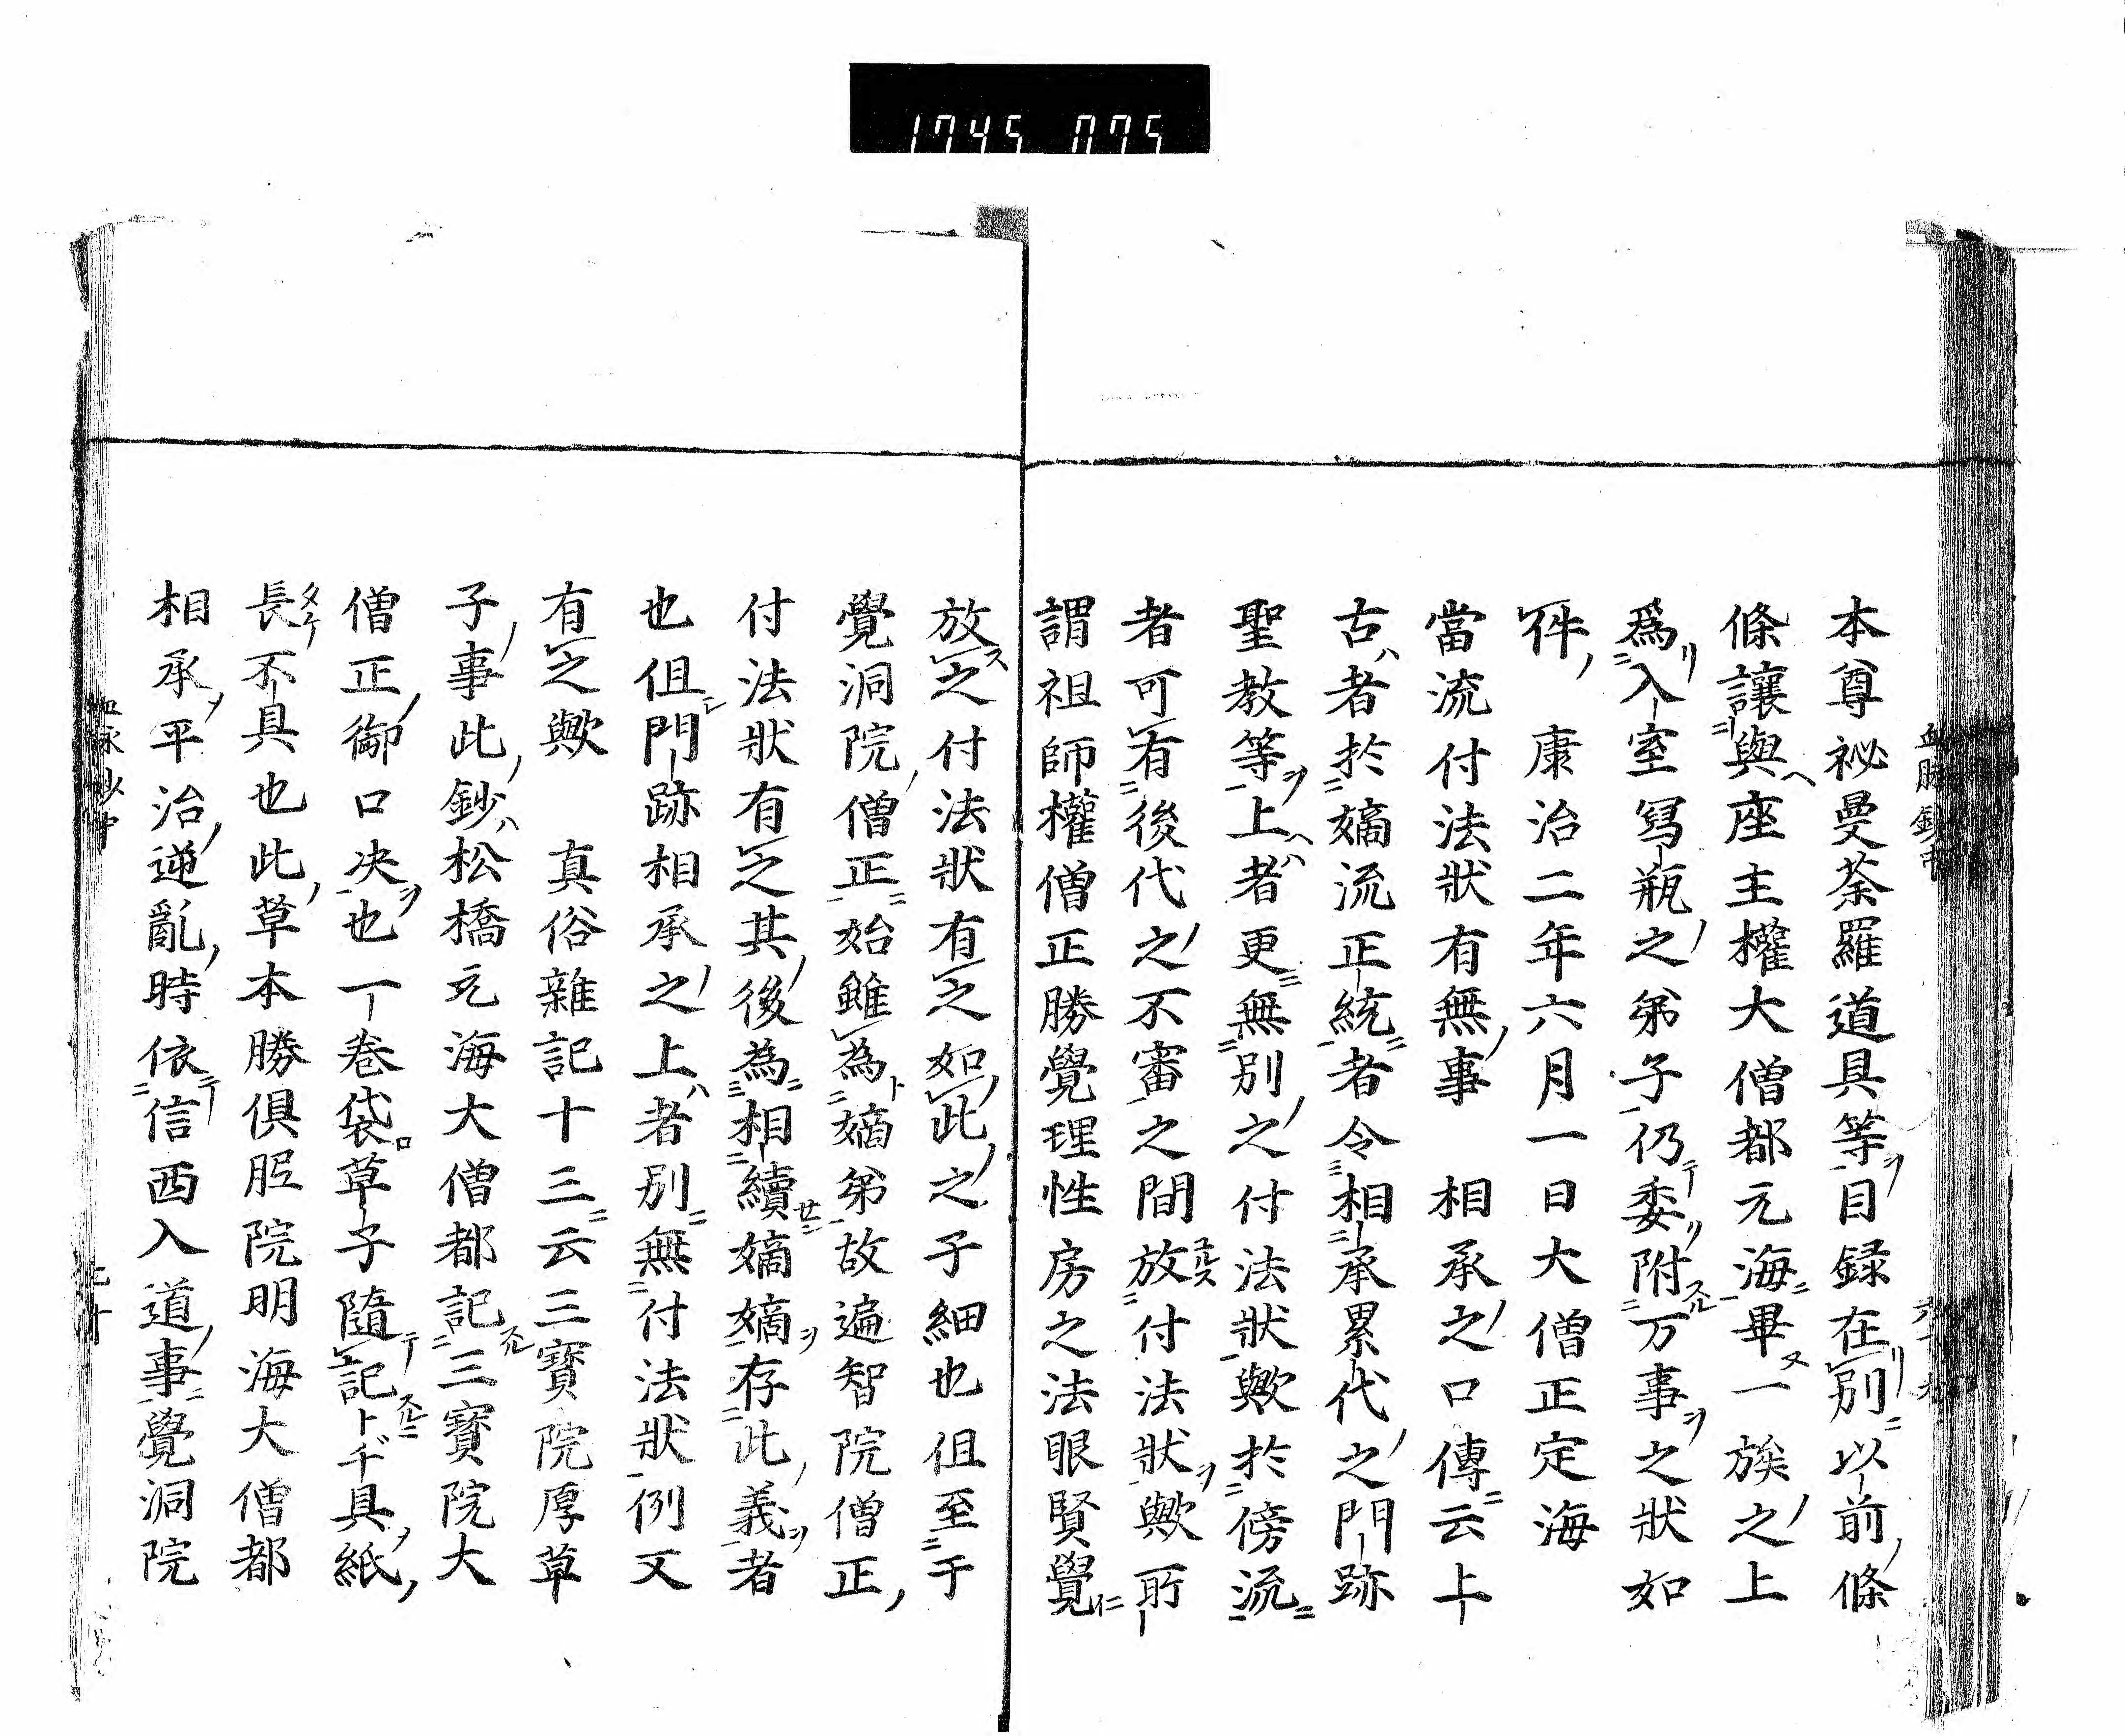 1745 075
本尊祕曼荼羅道具等目録在別以前條
條讓與座主權大僧都元海畢一族之上
爲入室寫瓶之弟子仍委附万事之狀如
件　康治二年六月一日大僧正定海
當流付法狀有無事　相承之口傳云上
古者於嫡流正統者令相承累代之門跡
聖教等上者更無別之付法狀歟於傍流
者可有後代之不審之間放付法狀歟所
謂祖師權僧正勝覺理性房之法眼賢覺
放之付法狀有之如此之子細也但至于
覺洞院僧正始雖為嫡弟故遍智院僧正
付法狀有之其後為相續嫡嫡存此義者
也但門跡相承之上者別無付法狀例又
有之歟　真俗雜記十三云三寶院厚草
子事此鈔松橋元海大僧都記三寶院大
僧正御口决也一卷袋草子隨記卜ヂ具紙
長不具也此草本勝俱胝院明海大僧都
相承平治逆亂時依信西入道事覺洞院